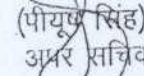 (पीयूष सिंह)
अपर सचिव